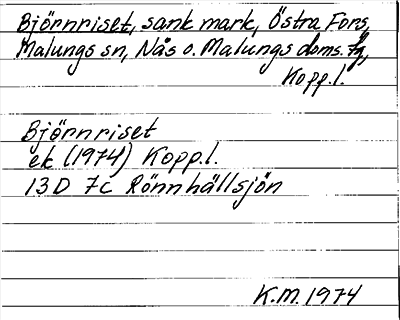 Björnriset, sank mark, Östra Fors,
Malungs sn, Nås o. Malungs doms. tg,
Kopp.l.
Björnriset
ek (1974) Kopp.l.
13 D 7c Rönnhällsjön
K.M. 1974